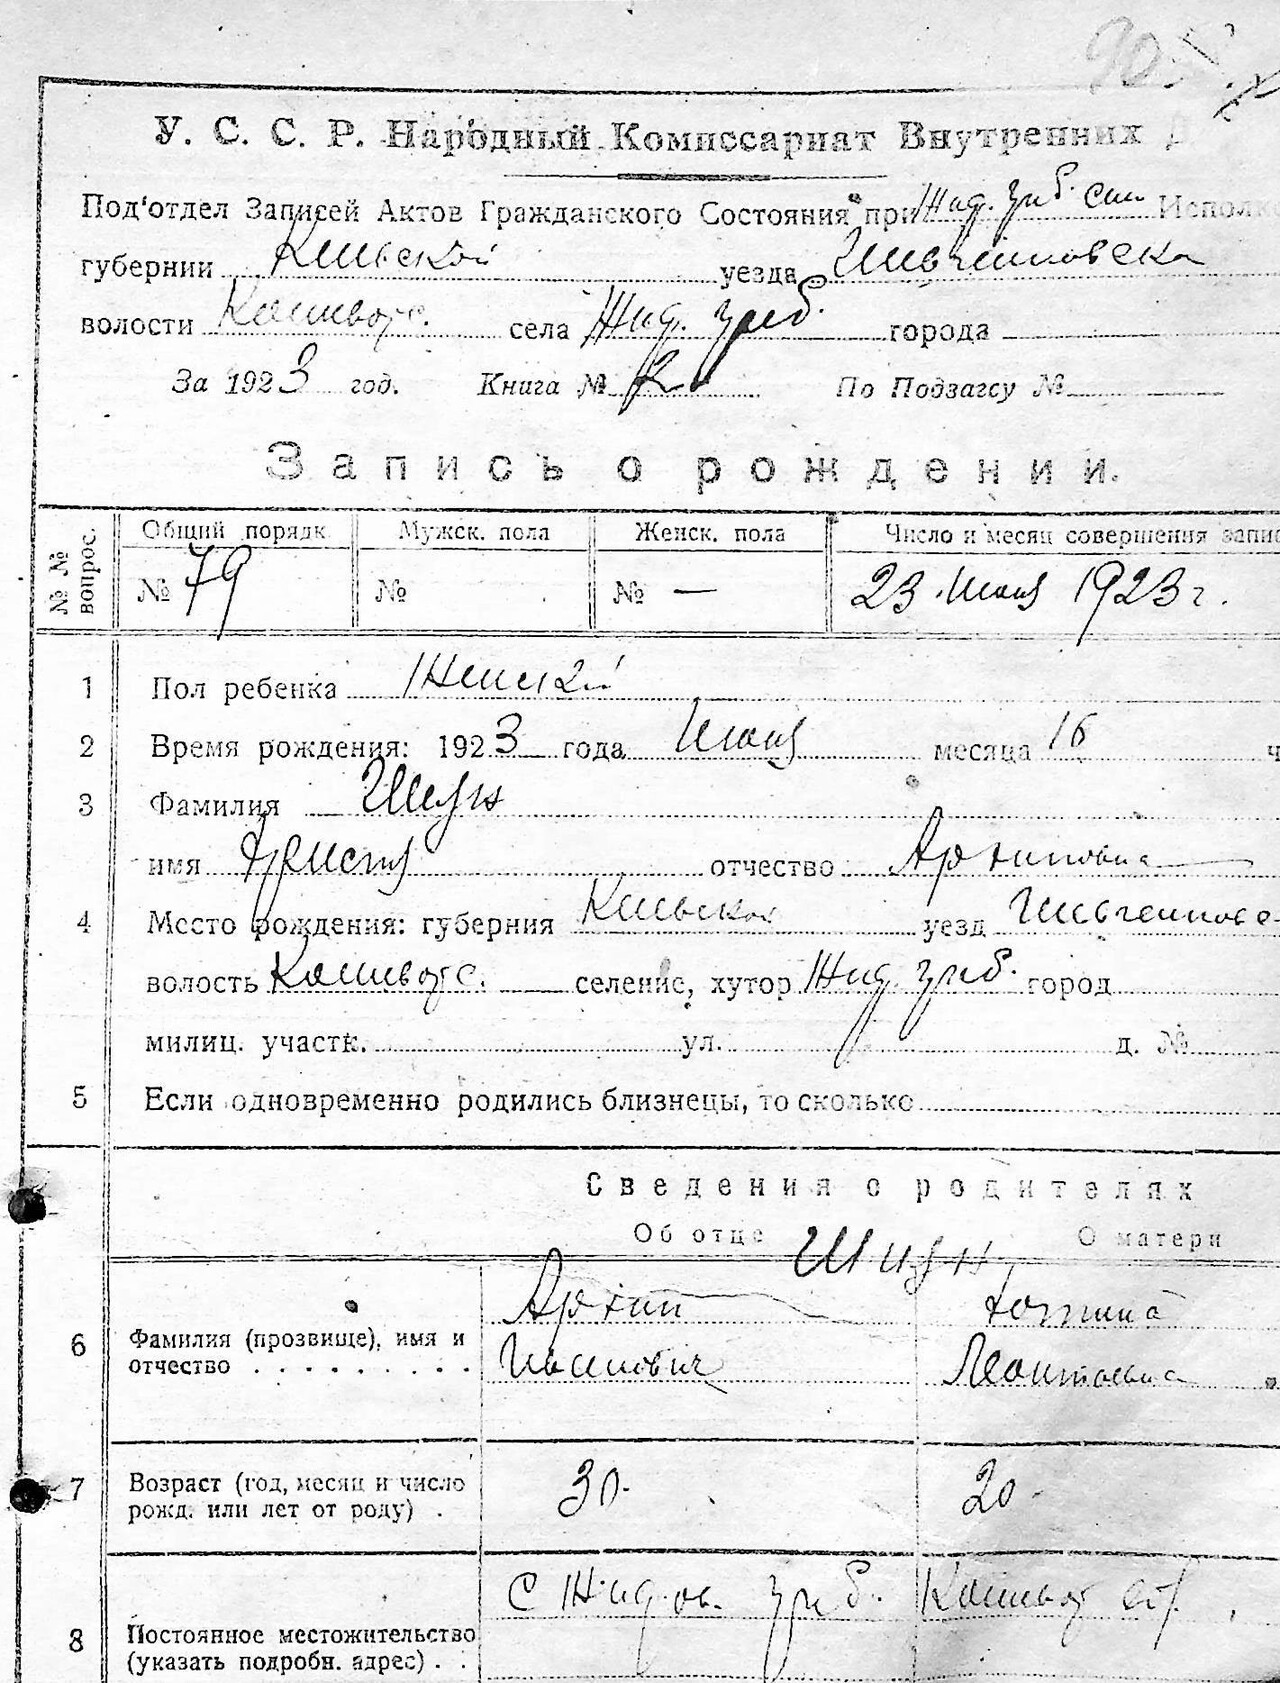 У. С. С. Р. Народный Комиссариат Внутренних
Под'отдел Записей Актов Гражданского Состояния при Жид. Исполко
губернии Киевской уезда
волости села Жид. греб. города
За 1923 год. Книга № 2 По Подзагсу №
Запись о рождении.
№ № вопрос. Общий порядк Мужск. пола Женск. пола Число и месяц совершения запис
№ 79 № № — 23 Июня 1923 г.
1 Пол ребенка Женский
2 Время рождения: 1923 года Июня месяца 16 ч
3 Фамилия
имя отчество Архиповна
4 Место рождения: губерния Киевская уезд
волость селение, хутор Жид. греб. город
милиц. участк. ул. д. №
5 Если одновременно родились близнецы, то сколько
Сведения о родителях
Об отце О матери
6 Фамилия (прозвище), имя и Архип
отчество . . . . . . . . . Иванович Леонтьевна
7 Возраст (год, месяц и число 30. 20.
рожд. или лет от роду) .
С Жидов. греб.
8 Постоянное местожительство
(указать подробн. адрес) . .